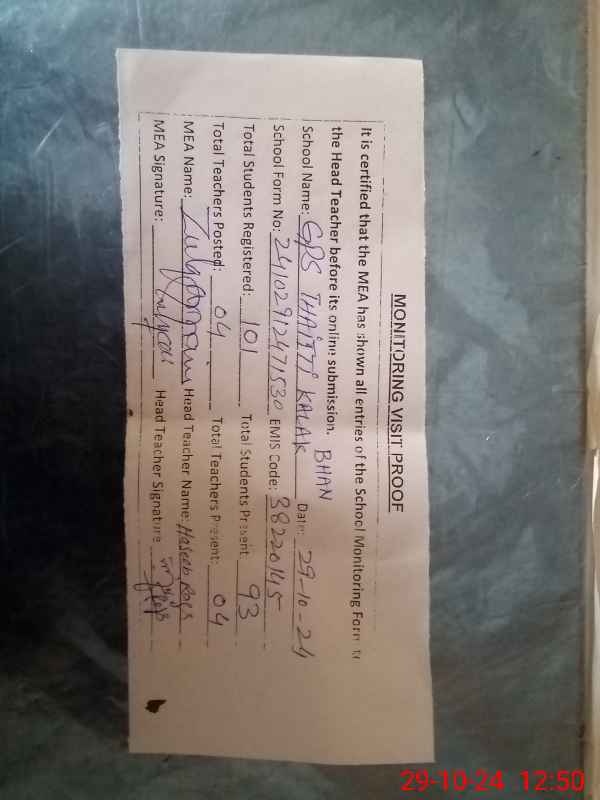 MONITORING VISIT PROOF
It is certified that the MEA has shown all entries of the School Monitoring Form to
the Head Teacher before its online submission.
School Name: GPS THATTI KALAR BHAN Date: 29-10-24
School Form No: 24102912471530 EMIS Code: 38220145
Total Students Registered: 101 Total Students Present 93
Total Teachers Posted: 04 Total Teachers Present: 04
MEA Name: Head Teacher Name: Haseeb
MEA Signature: Head Teacher Signature
29-10-24 12:50